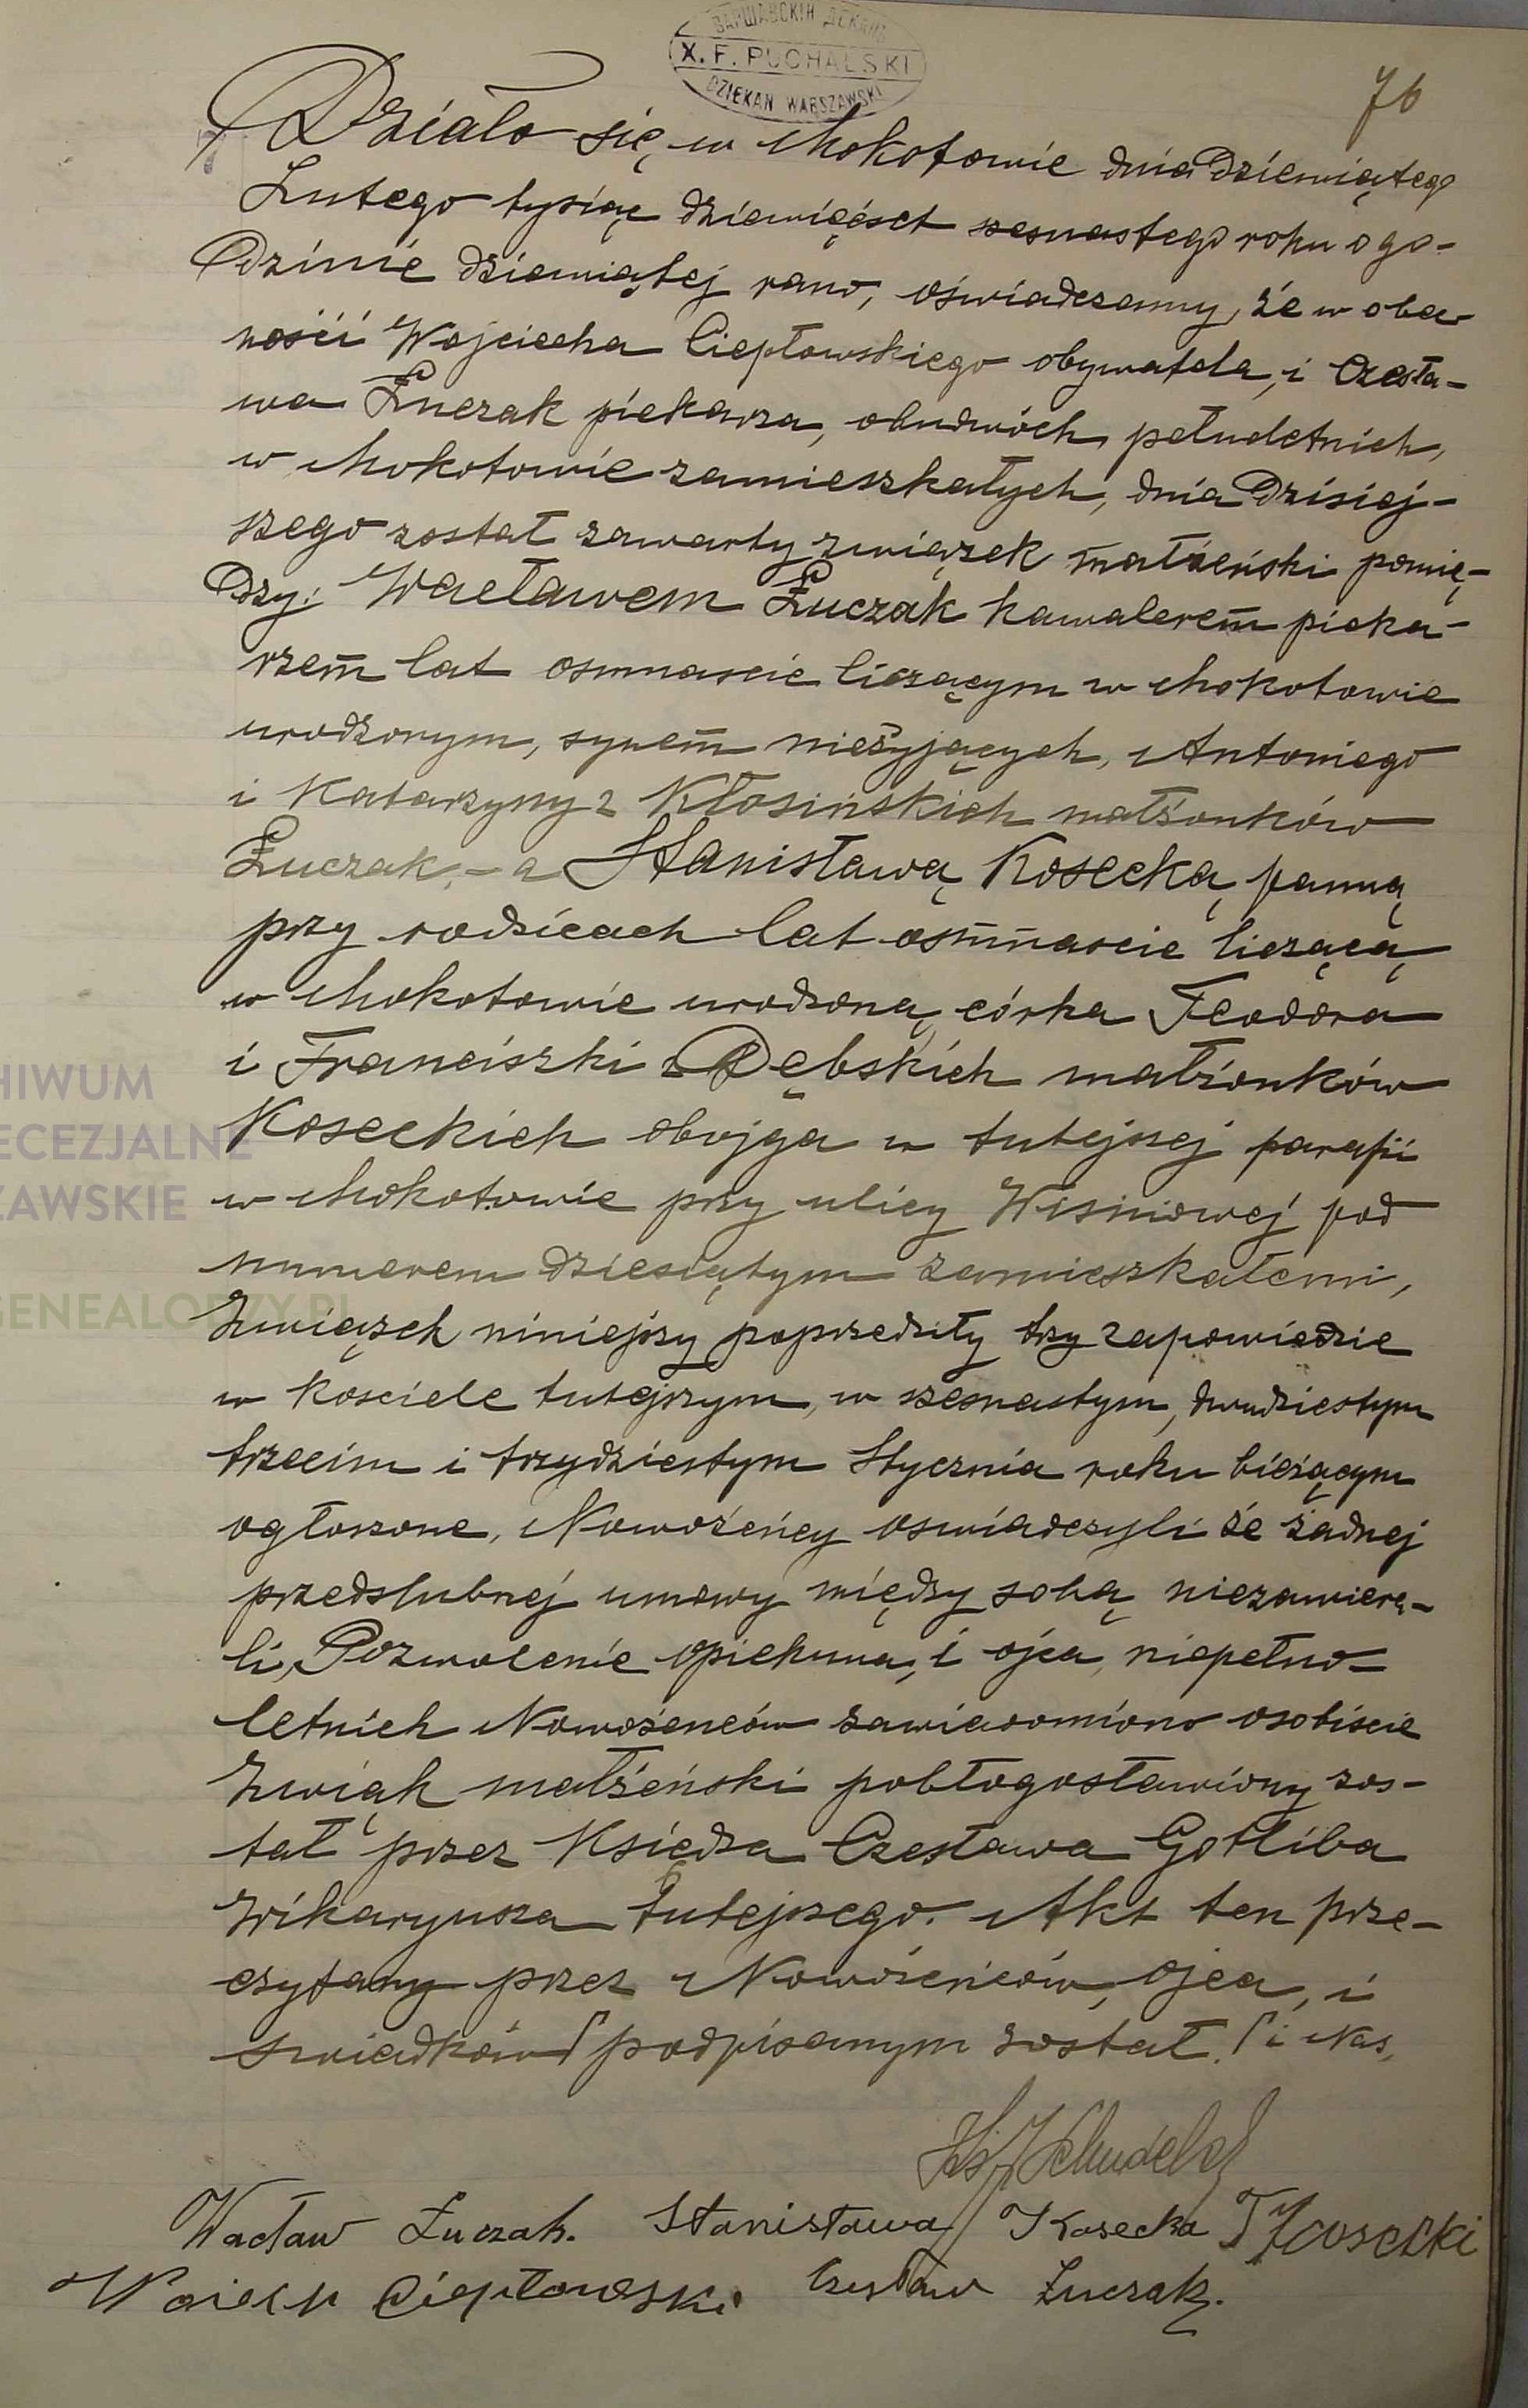 ВАРШАВСКІЙ ДЕКАНЪ
X. F. PUCHALSKI
DZIEKAN WARSZAWSKI
76
Działo się w Mokotowie dnia Dziewiątego
Lutego tysiąc dziewięćset szesnastego roku o go-
dzinie dziewiątej rano, oświadczamy, że w obec-
ności Wojciecha Ciepłowskiego obywatela, i Czesła-
wa Łuczak piekarza, obudwóch pełnoletnich,
w Mokotowie zamieszkałych, dnia Dzisiej-
szego został zawarty związek małżeński pomię-
dzy: Wacławem Łuczak kawalerem pieka-
rzem lat osmnascie liczącym w Mokotowie
urodzonym, synem nieżyjących, Antoniego
i Katarzyny z Kłosińskich małżonków
Łuczak, - a Stanisławą Kosecką panną
przy rodzicach lat osmnascie liczącą
w Mokotowie urodzoną, córka Teodora
i Franciszki z Dębskich małżonków
Koseckich obojga w tutejszej parafii
w Mokotowie przy ulicy Wisniowej pod
numerem dziesiątym zamieszkałemi,
Związek niniejszy poprzedziły trzy zapowiedzie
w kosciele tutejszym, w szesnastym, dwudziestym
trzecim i trzydziestym Stycznia roku bieżącym
ogłoszone, Nowożeńcy oswiadczyli że żadnej
przedslubnej umowy między sobą niezawiera-
li, Pozwolenie opiekuna, i ojca, niepełno-
letnich Nowożeńców zawiadomiono osobiscie
Zwiąk małżeński pobłogosławiony zos-
tał przez Księdza Czesława Gotliba
Wikaryusza tutejszego. Akt ten prze-
czytany przez Nowożeńców, ojca, i
swiadków podpisanym został. i Nas,
Wacław Łuczak. Stanisława Kosecka T Kosecki
Wojciech Ciepłowski. Czesław Łuczak.
HIWUM
ECEZJALNE
ZAWSKIE
GENEALODZY.PL